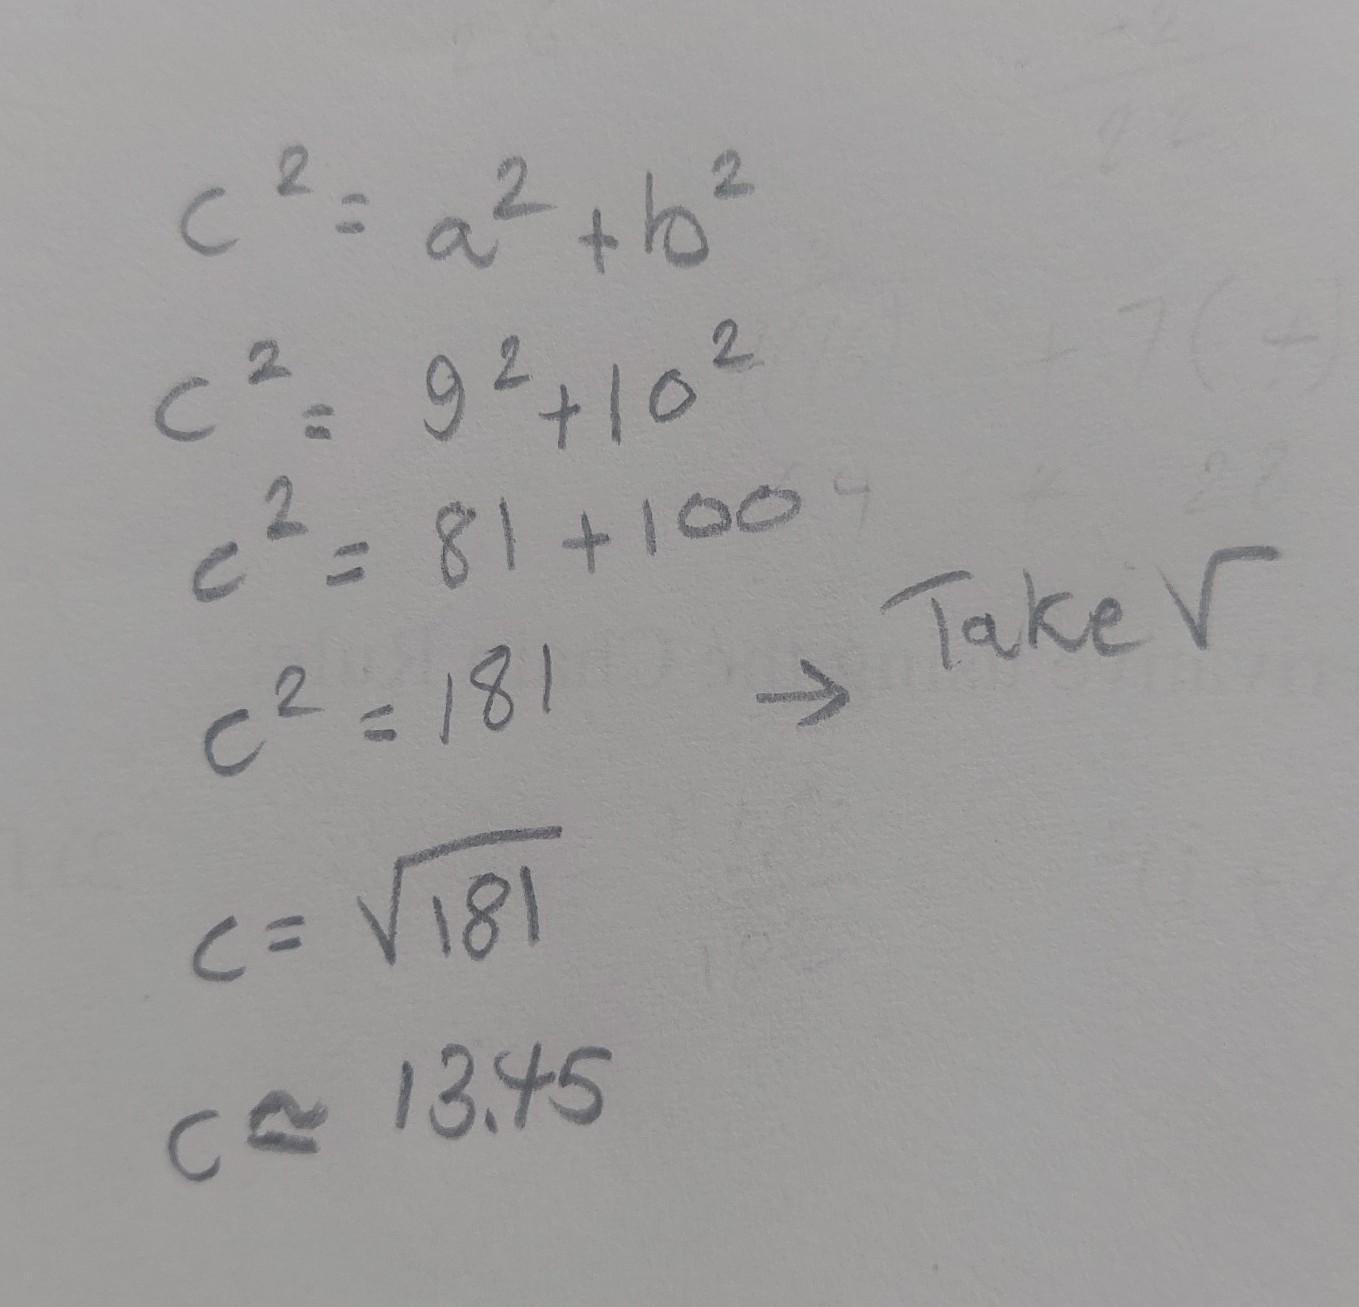 c² = a² + b²
c² = 9² + 10²
c² = 81 + 100
c² = 181 → Take √
c = √181
c ≃ 13.45